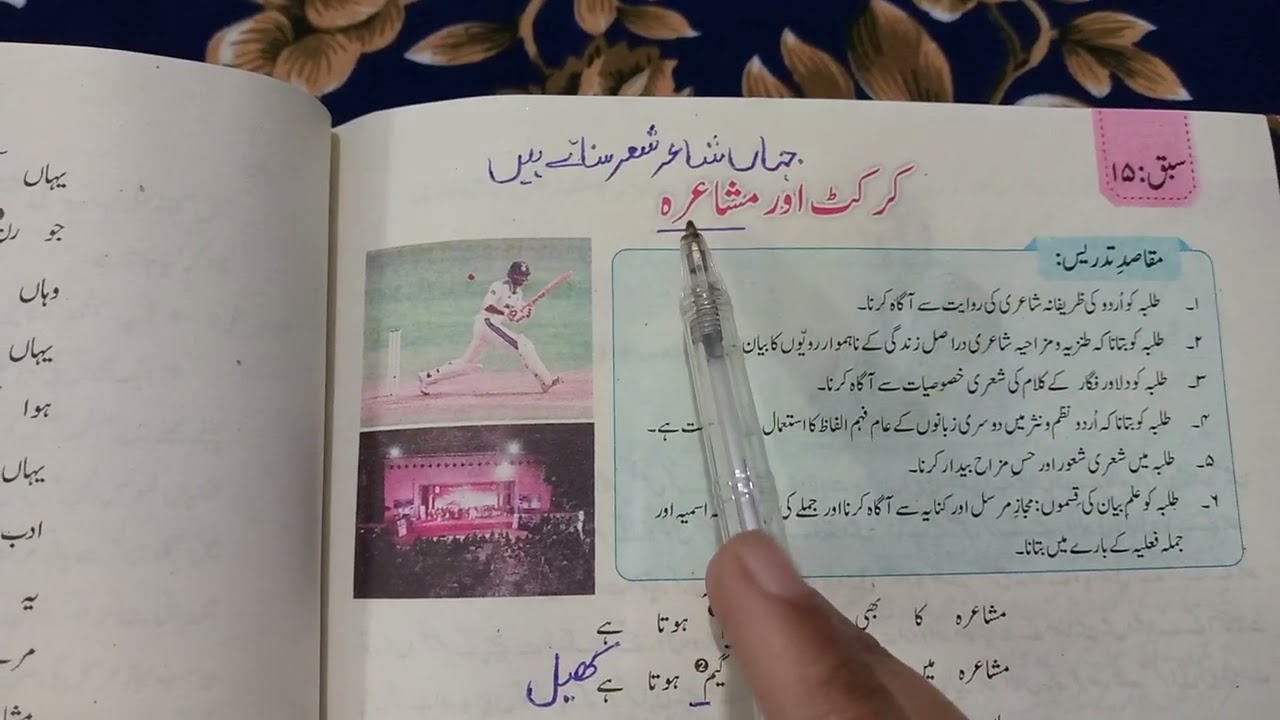 جہاں شاعر شعر سناتے ہیں
سبق:۱۵
کرکٹ اور مشاعرہ
مقاصدِ تدریس:
۱۔ طلبہ کو اُردو کی ظریفانہ شاعری کی روایت سے آگاہ کرنا۔
۲۔ طلبہ کو بتانا کہ طنزیہ و مزاحیہ شاعری دراصل زندگی کے ناہموار رویّوں کا بیان
۳۔ طلبہ کو دلاور فگار کے کلام کی شعری خصوصیات سے آگاہ کرنا۔
۴۔ طلبہ کو بتانا کہ اُردو نظم و نثر میں دوسری زبانوں کے عام فہم الفاظ کا استعمال ہے۔
۵۔ طلبہ میں شعری شعور اور حسِ مزاح بیدار کرنا۔
۶۔ طلبہ کو علمِ بیان کی قسموں: مجازِ مرسل اور کنایہ سے آگاہ کرنا اور جملے کی اسمیہ اور
جملہ فعلیہ کے بارے میں بتانا۔
مشاعرہ کا بھی ہوتا ہے
مشاعرہ گیم ❷ ہوتا ہے
کھیل
یہاں
جو
وہاں
یہاں
ہوا
یہاں
ادب
یہ